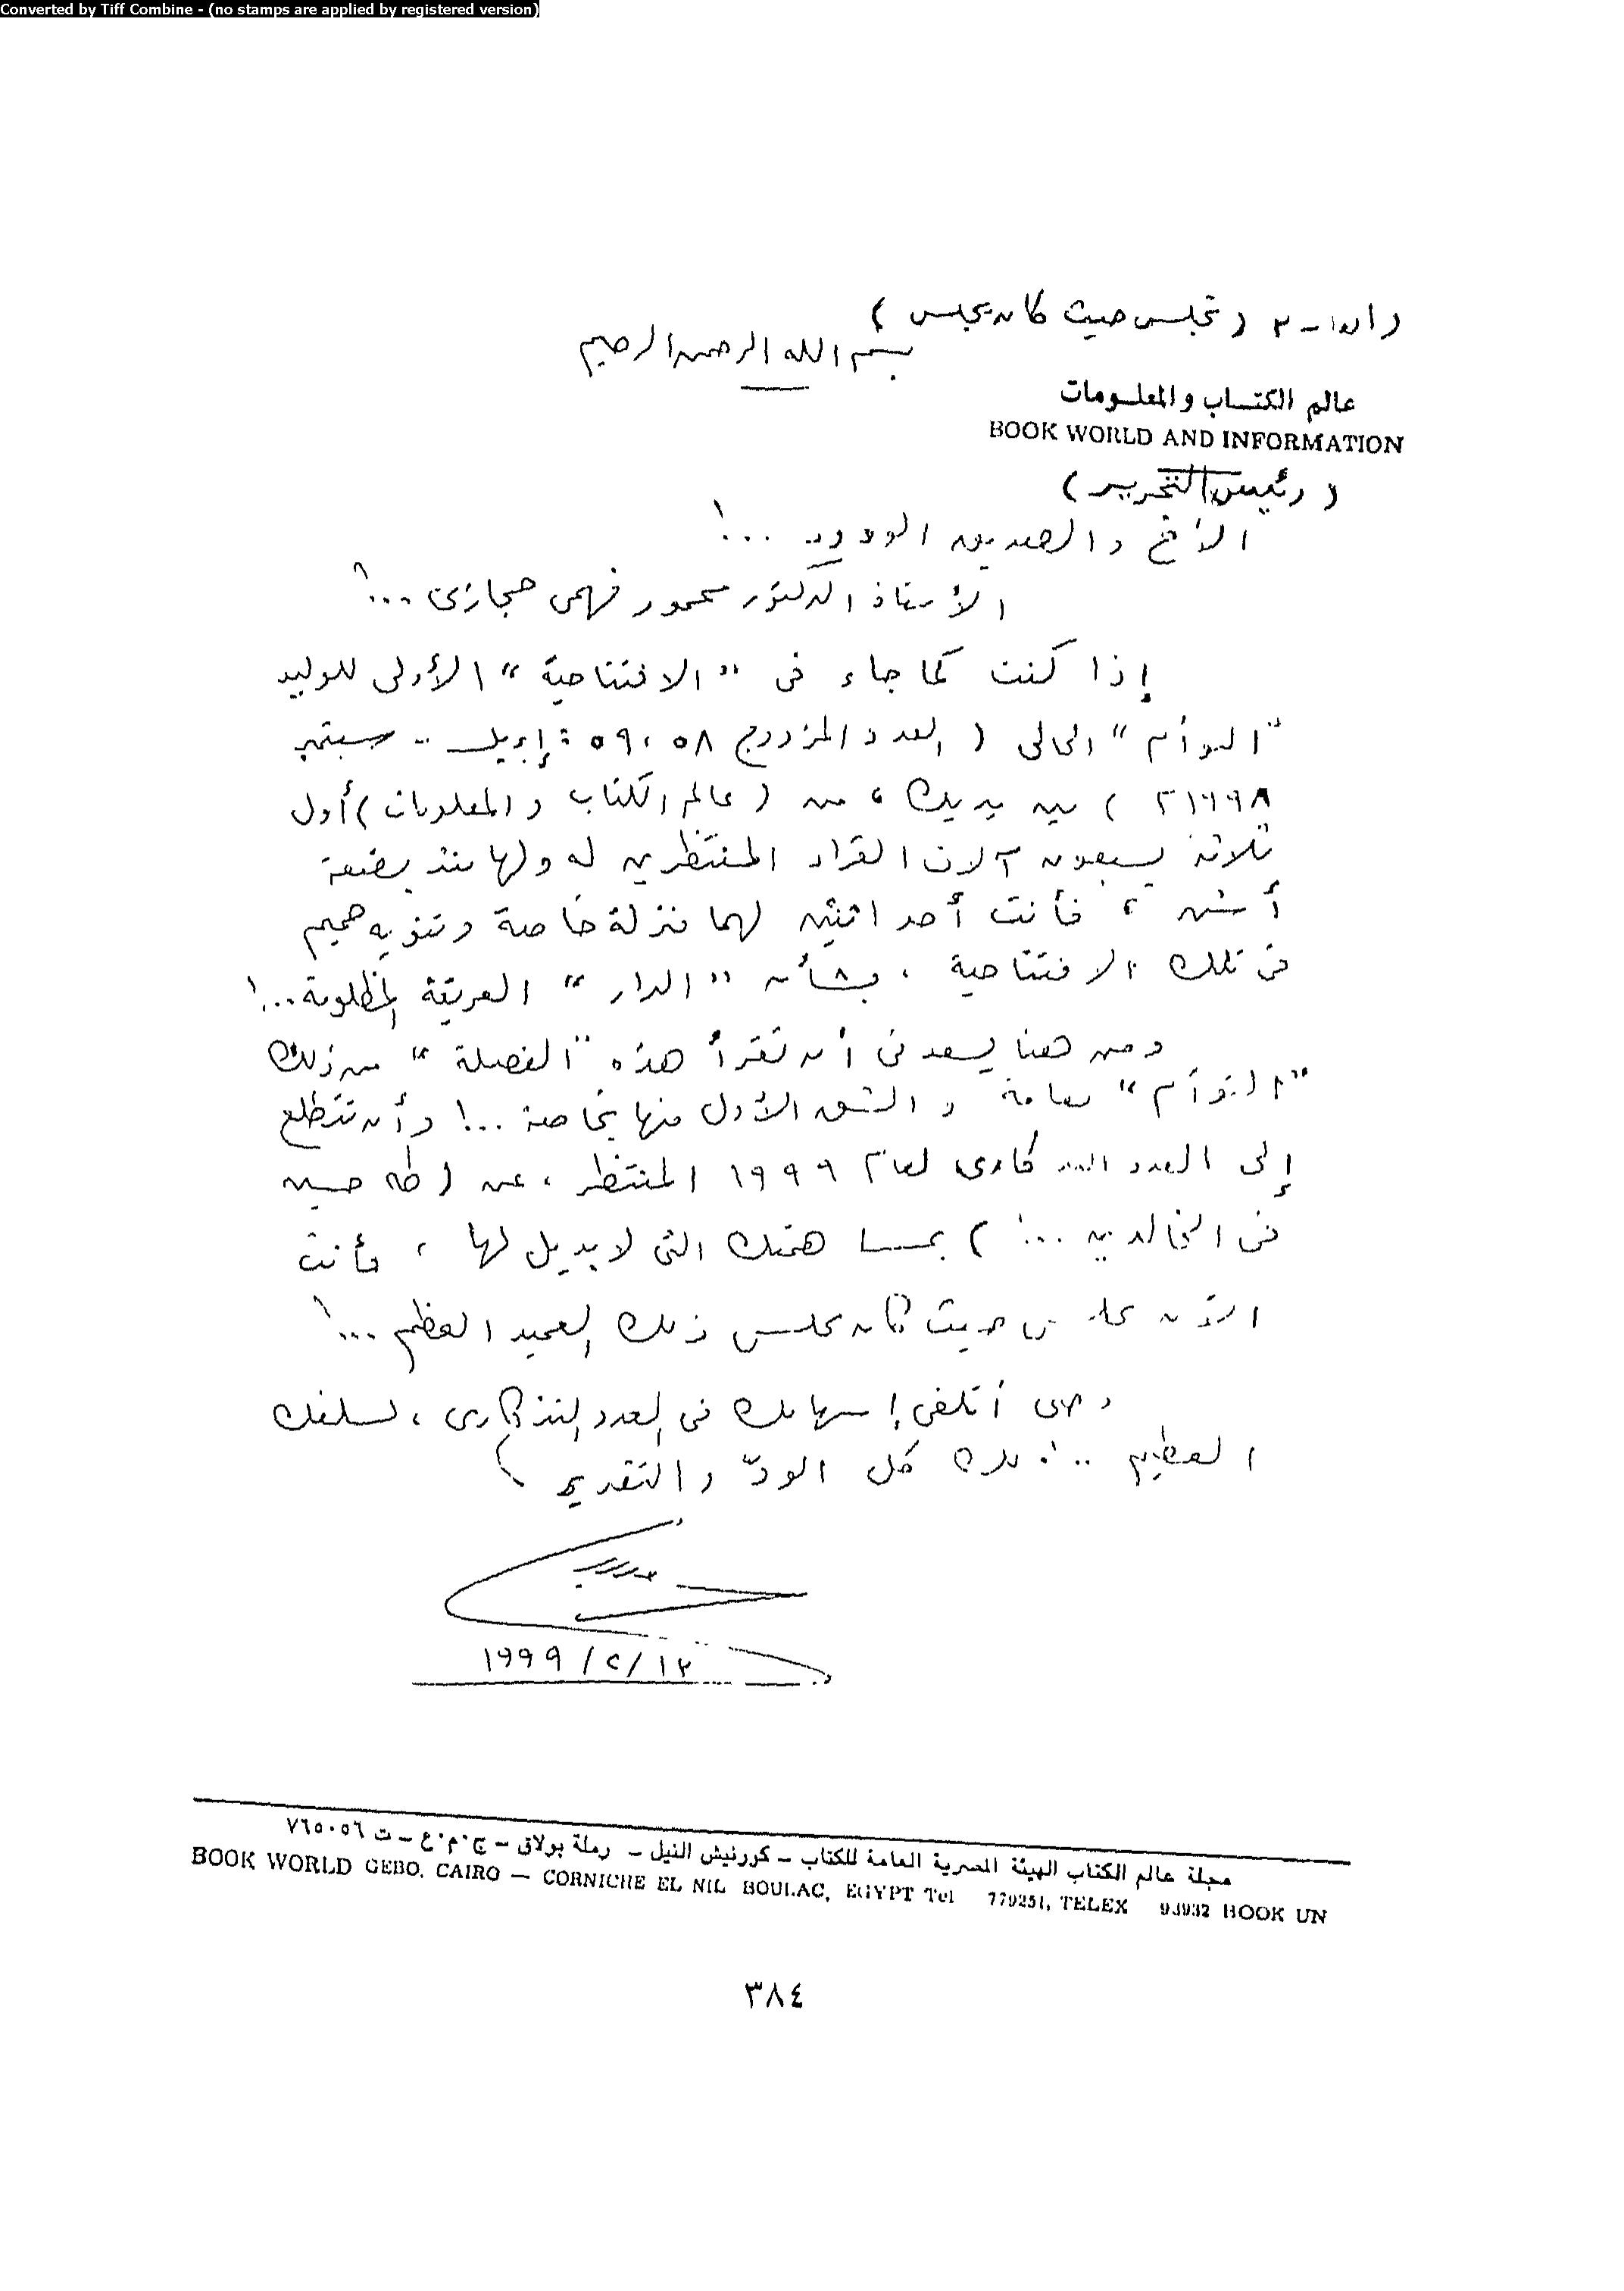 Converted by Tiff Combine - (no stamps are applied by registered version)
٢ ( تجلس حيث كان يجلس )
بسم الله الرحمن الرحيم
عالم الكتاب والمعلومات
BOOK WORLD AND INFORMATION
( رئيس التحرير )
الأخ والصديق الودود ...!
الأستاذ الدكتور محمود فهمى حجازى ...!
إذا كنت كما جاء فى " الافتتاحية " الأولى للوليد
" التوأم " الحالى ( العدد المزدوج ٥٨ ، ٥٩ : إبريل - سبتمبر
١٩٩٨م ) بين يديك ، من ( عالم الكتاب والمعلومات ) أول
ثلاثة يسبقون آلاف القراء المنتظرين له ولها منذ بضعة
أشهر ، فأنت أحد اثنين لهما منزلة خاصة وتنويه حميم
فى تلك الافتتاحية ، بشأن " الدار " العريقة المظلومة ...!
ومن هنا يسعدنى أن تقرأ هذه " الفصلة " من ذلك
" التوأم " بعامة والشق الأول منها بخاصة ...! وأن تتطلع
إلى العدد التذكارى لعام ١٩٩٩ المنتظر ، عن ( طه حسين
فى الخالدين ...! ) همتك التى لا بديل لها ، فأنت
الآن تجلس حيث كان يجلس ذلك العميد العظيم ...!
أتلقى إسهامك فى العدد التذكارى ، لسلفك
العظيم .. لك كل الودّ والتقدير
١٢ / ٢ / ١٩٩٩
مجلة عالم الكتاب الهيئة المصرية العامة للكتاب - كورنيش النيل - رملة بولاق - ج.م.ع - ت ٧٦٥٠٥٦
BOOK WORLD GEBO. CAIRO — CORNICHE EL NIL BOULAC, EGYPT Tel 779251, TELEX 93932 BOOK UN
٣٨٤